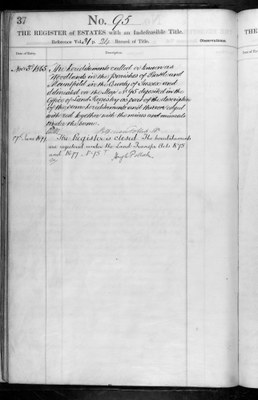 37
No. 95
THE REGISTER of ESTATES with an Indefeasible Title.
Reference Vol. 21 p. 26 Record of Title.
Date of Entry. Description. Observations.
Nov 3rd 1865 The hereditaments called or known as
Woodlands in the parishes of and
Mountfield in the County of Sussex and
delineated in the Map No 95 deposited in the
Office of Land Registry as part of the description
of the same hereditaments and thereon edged
with red together with the mines and minerals
under the same.
17th June 1899 The Register is closed. The hereditaments
are registered under the Land Transfer Acts 1875
and 1897.